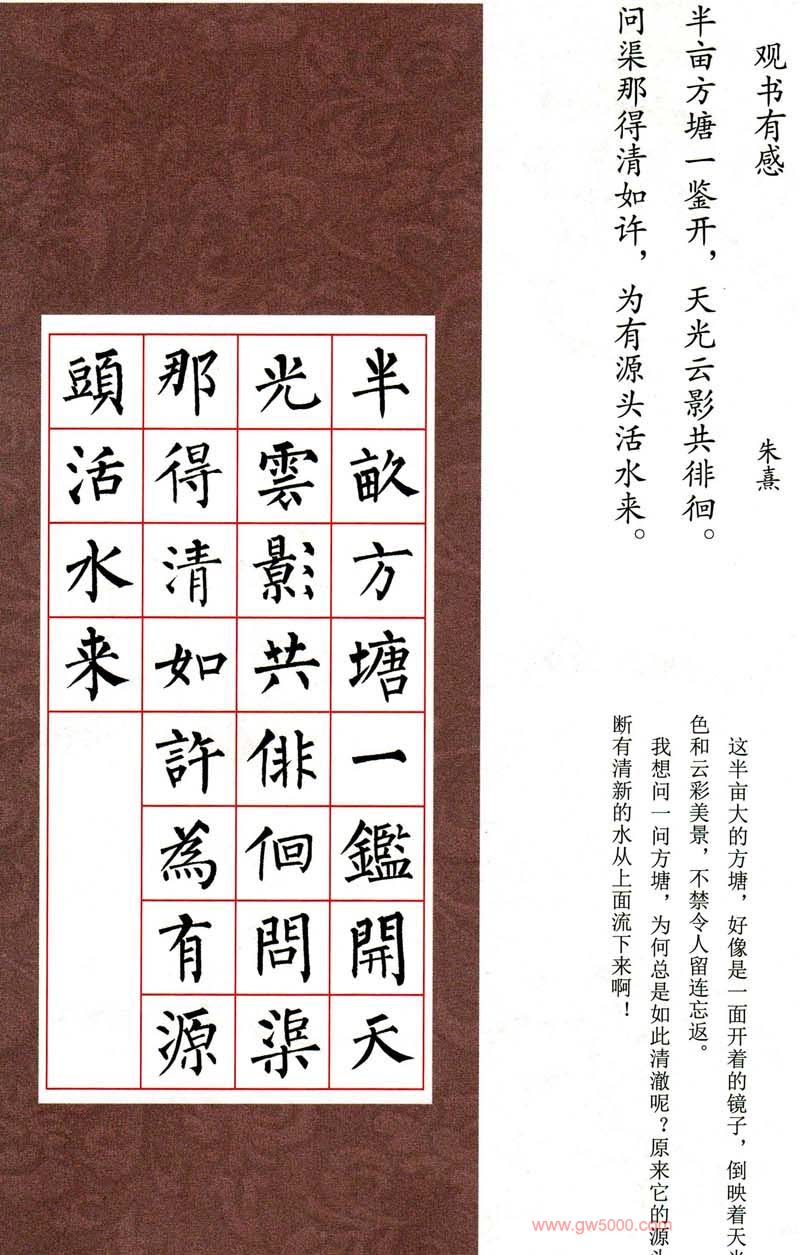 观书有感
朱熹
半亩方塘一鉴开，天光云影共徘徊。
问渠那得清如许，为有源头活水来。
这半亩大的方塘，好像是一面开着的镜子，倒映着天光
色和云彩美景，不禁令人留连忘返。
我想问一问方塘，为何总是如此清澈呢？原来它的源头
断有清新的水从上面流下来啊！
半畝方塘一鑑開天
光雲影共俳佪問渠
那得清如許為有源
頭活水来
www.gw5000.com